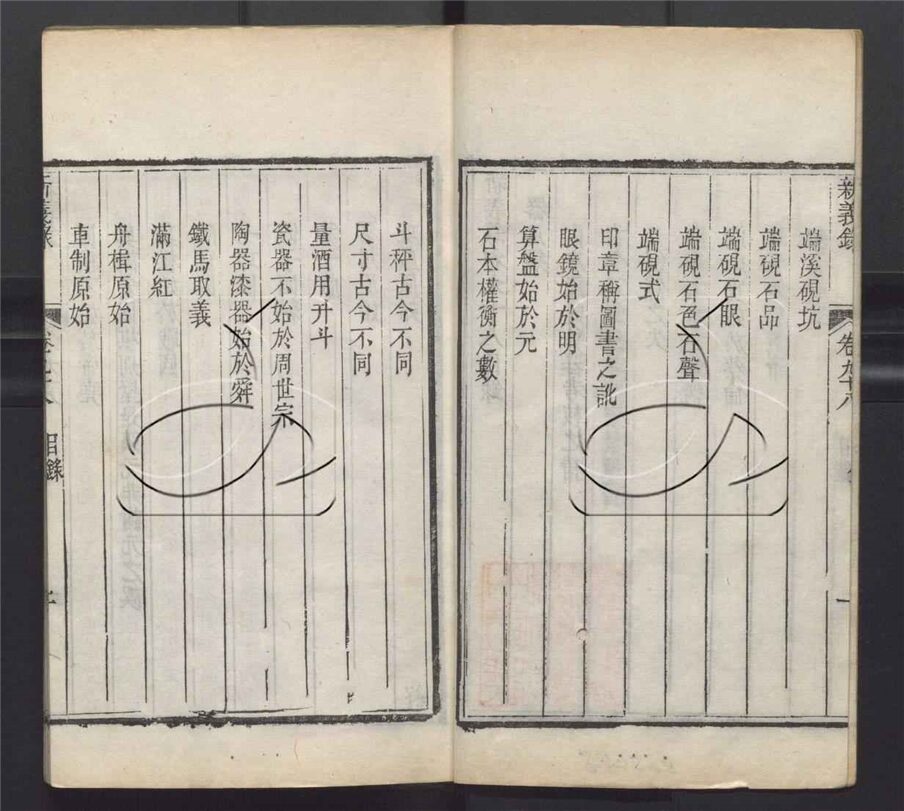 新義錄
卷九十八
一
端溪硯坑
端硯石品
端硯石眼
端硯石色石聲
端硯式
印章稱圖書之訛
眼鏡始於明
算盤始於元
石本權衡之數
斗秤古今不同
尺寸古今不同
量酒用升斗
瓷器不始於周世宗
陶器漆器始於舜
鐵馬取義
滿江紅
舟楫原始
車制原始
目錄